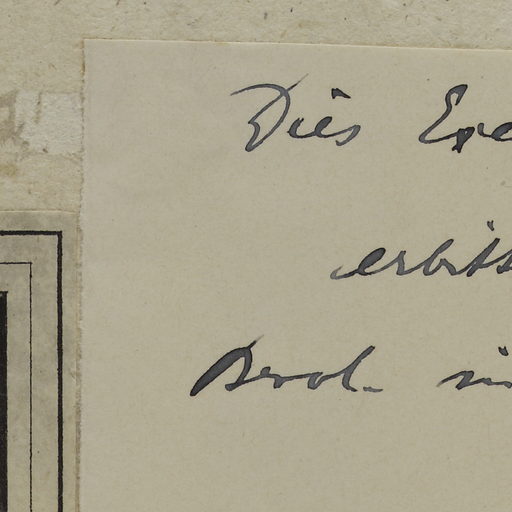 Dies Exe
erbitt
Berol.